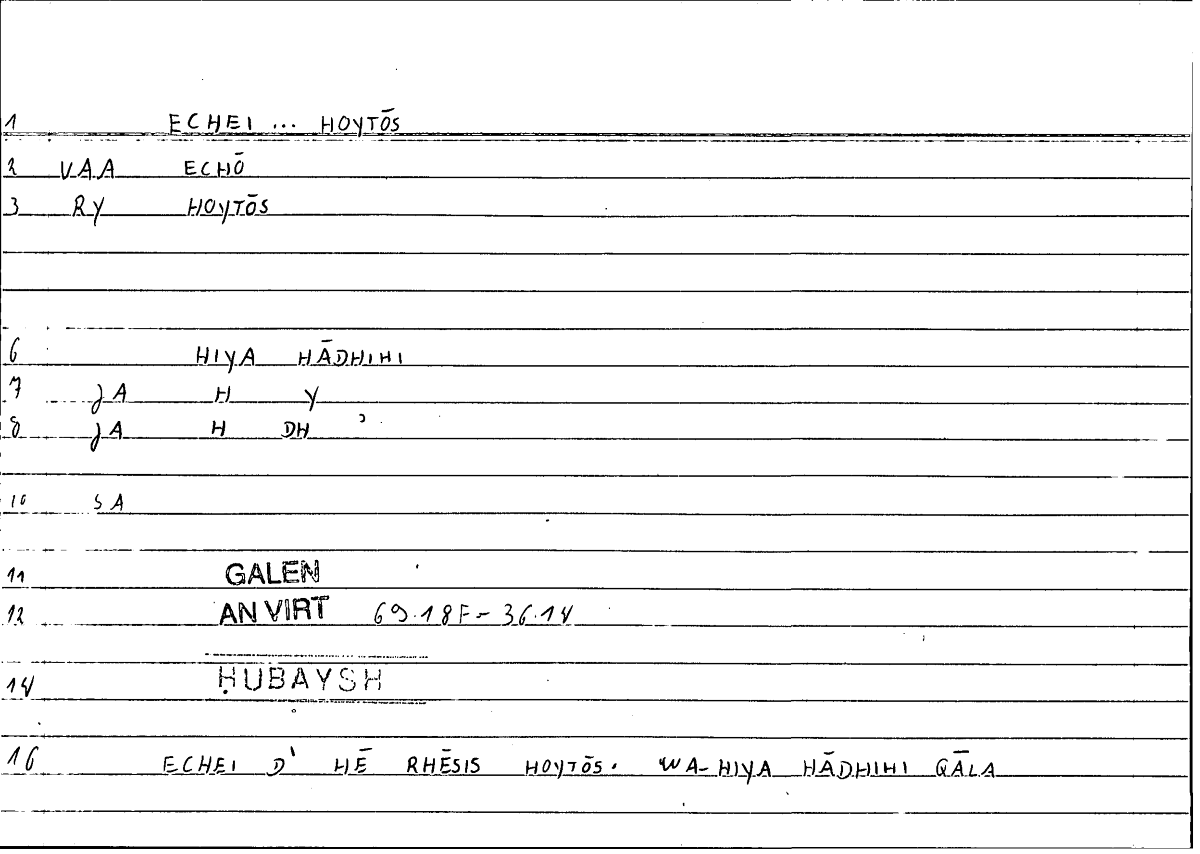 1 ECHEI ... HOYTŌS
2 VAA ECHŌ
3 RY HOYTŌS
6 HIYA HĀDHIHI
7 JA H Y
8 JA H DH ʾ
10 SA
11 GALEN
12 AN VIRT 69.18F - 36.14
14 ḤUBAYSH
16 ECHEI D' HĒ RHĒSIS HOYTŌS. WA-HIYA HĀDHIHI QĀLA